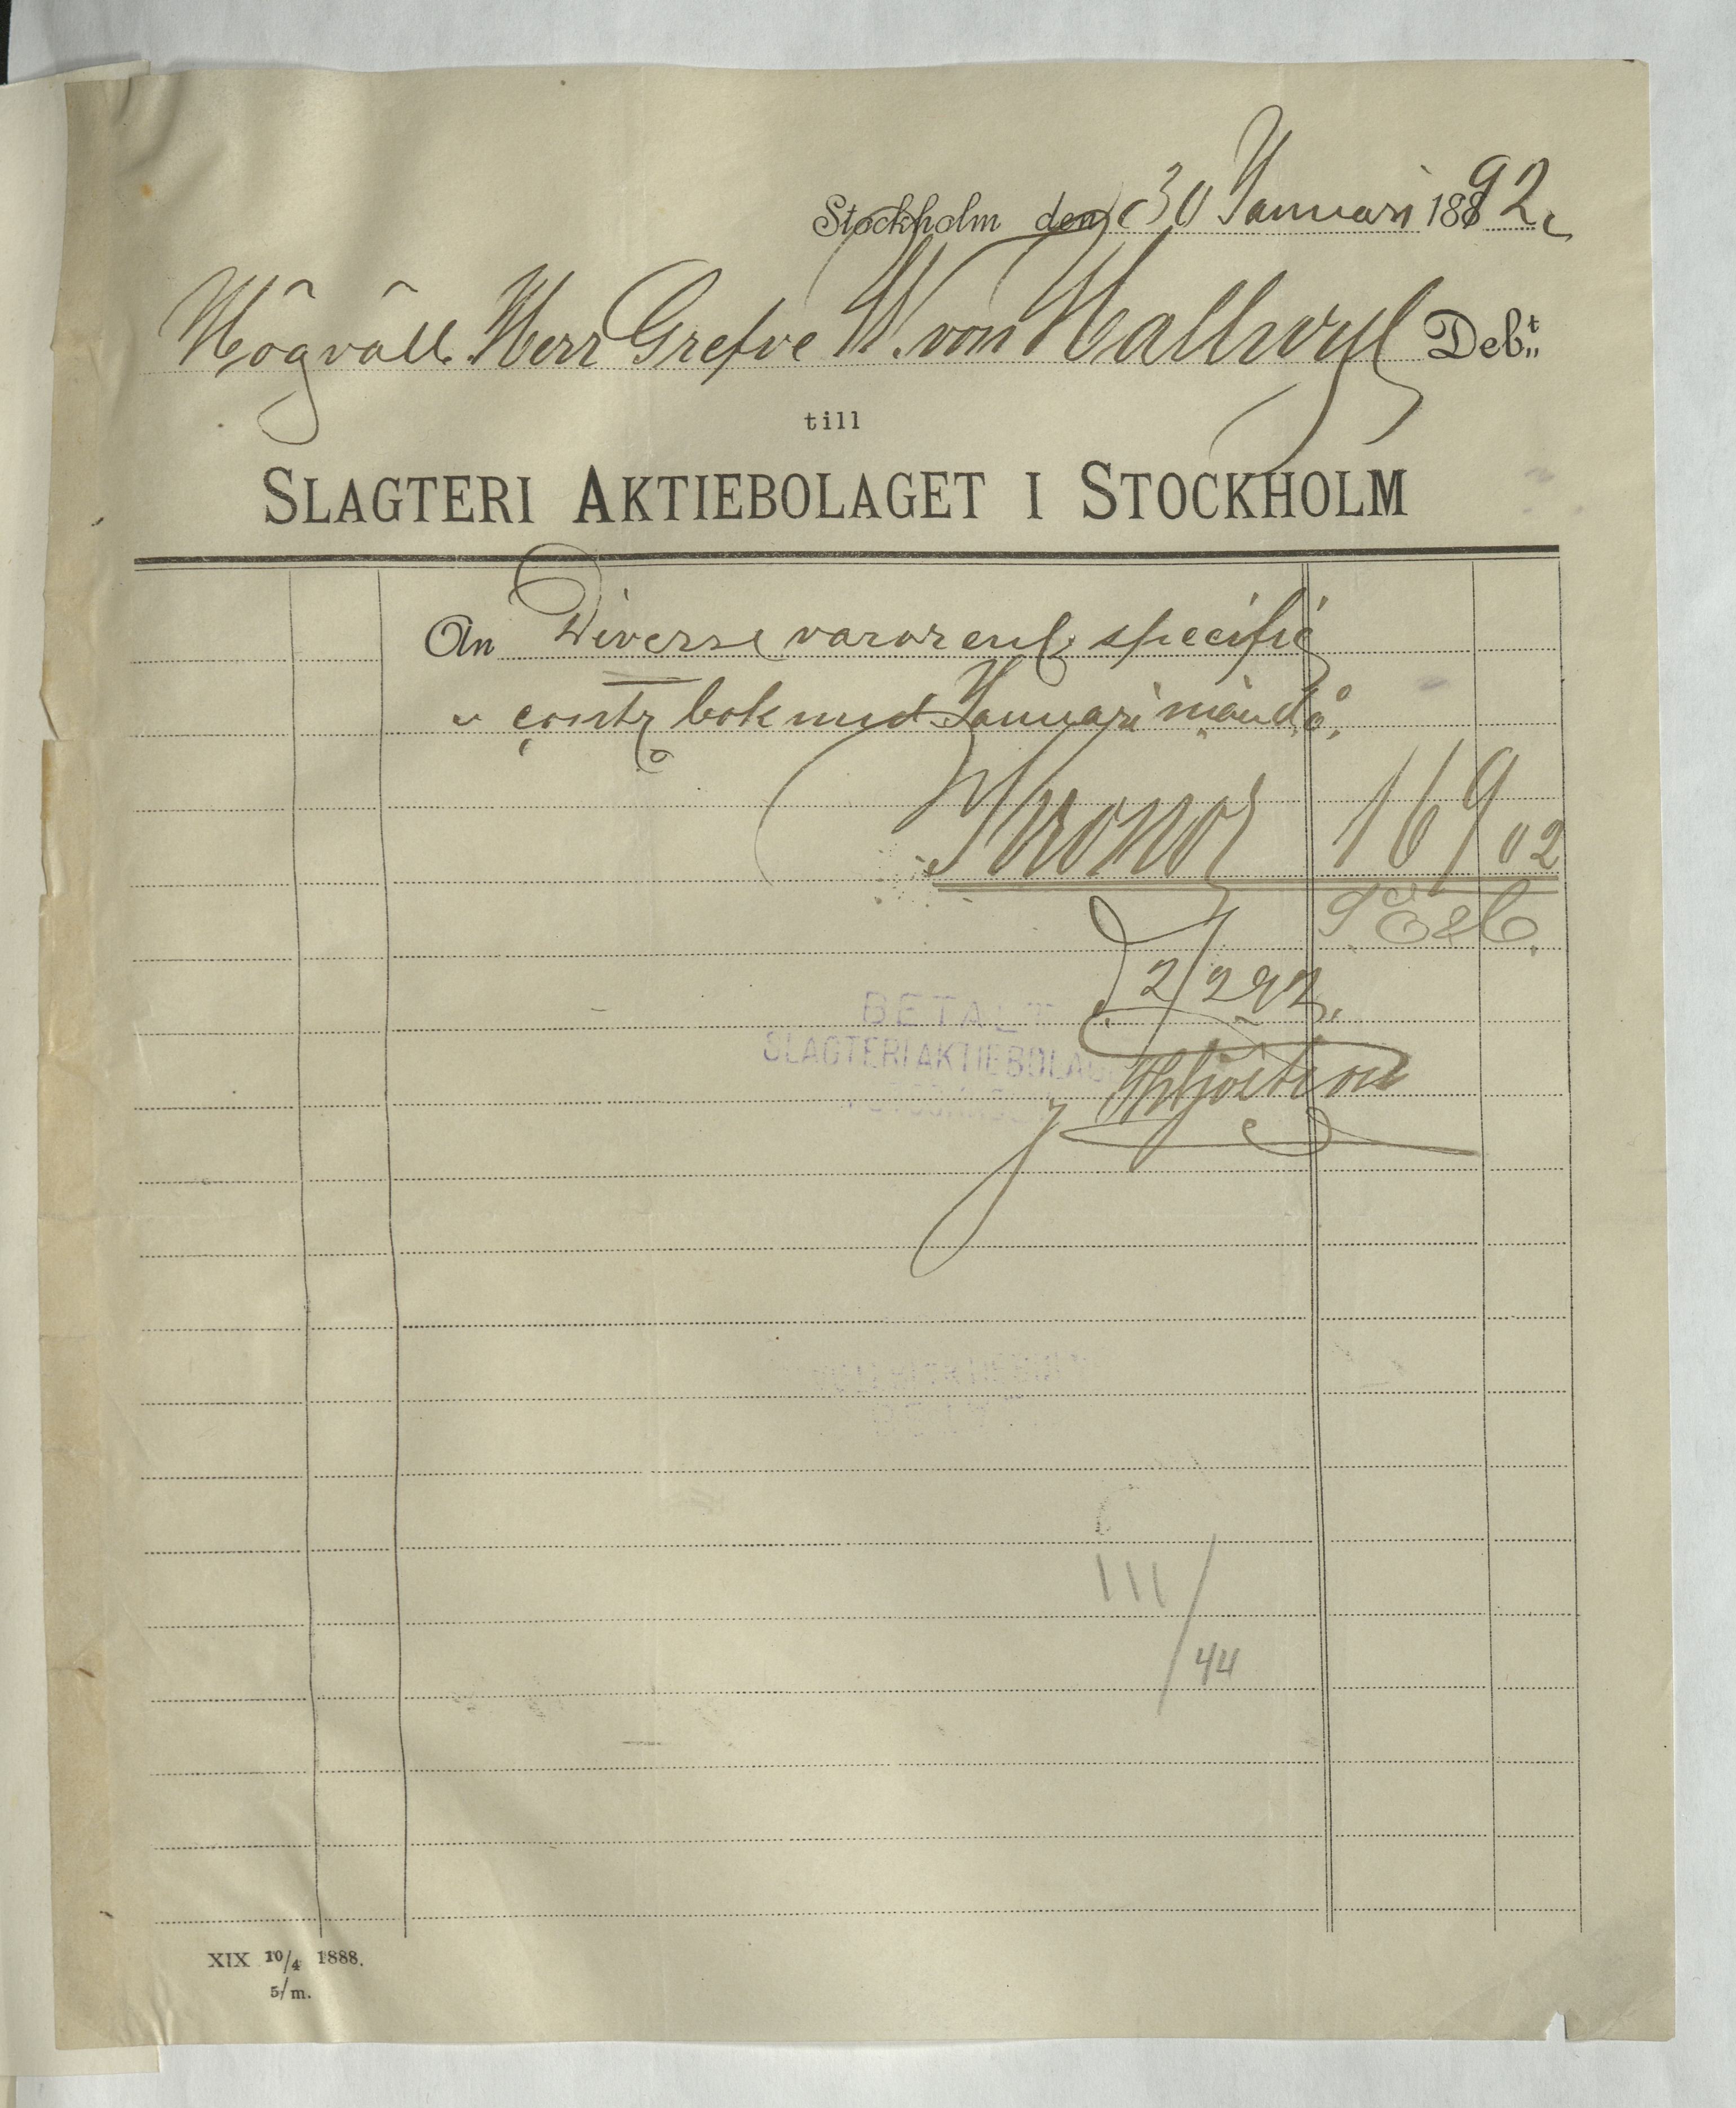 Stockholm den 30 Januari 1892
Högväll. Herr Grefve W. von Hallwyl Deb:t
till
SLAGTERI AKTIEBOLAGET I STOCKHOLM
An Diverse varor enl. specifi
" contr bok med Januari månad
Kronor 169 02
S. E. & O.
d. 2/2 92.
BETALT
SLAGTERIAKTIEBOLAG
111/44
XIX 10/4 1888.
5/m.